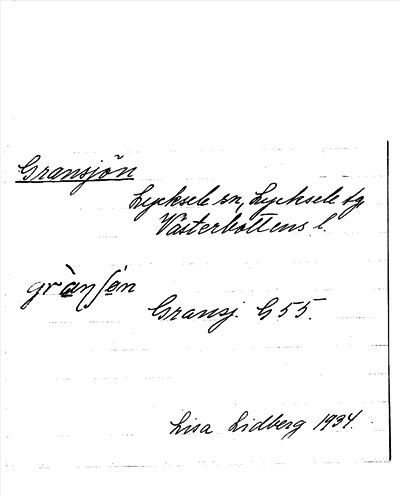 Gransjön
Lycksele sn, Lycksele tg
Västerbottens l.
grànʃɵ́n
Gransj. G 55.
Lisa Lidberg 1934.